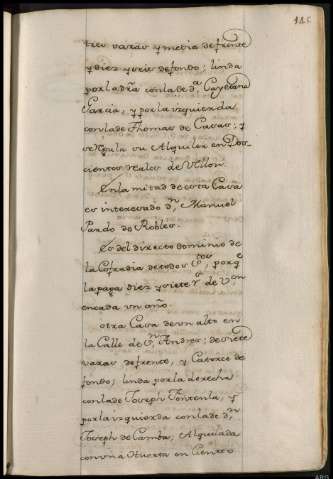 146
tres varas y media de frente
y diez y seis de fondo; linda
por la dra con la de d.a Cayetana
Garcia, y por la izquierda
con la de Thomas de Casas; y
regula su Alquiler en Dos
cientos reales de Vellon.
En la mitad de esta Casa
es interesado d.n Manuel
Pardo de Robles.
Es del directo dominio de
la Cofradia de todos S.tos, por q.e
la paga diez y siete r.s de V.on
en cada un año.
otra Casa de un alto en
la Calle de S.n Andres; de siete
varas de frente, y Catorce de
fondo; linda por la derecha
con la de Joseph Fontenla, y
por la izquierda con la de d.n
Joseph de Camba, Alquilada
con una Huerta en Ciento